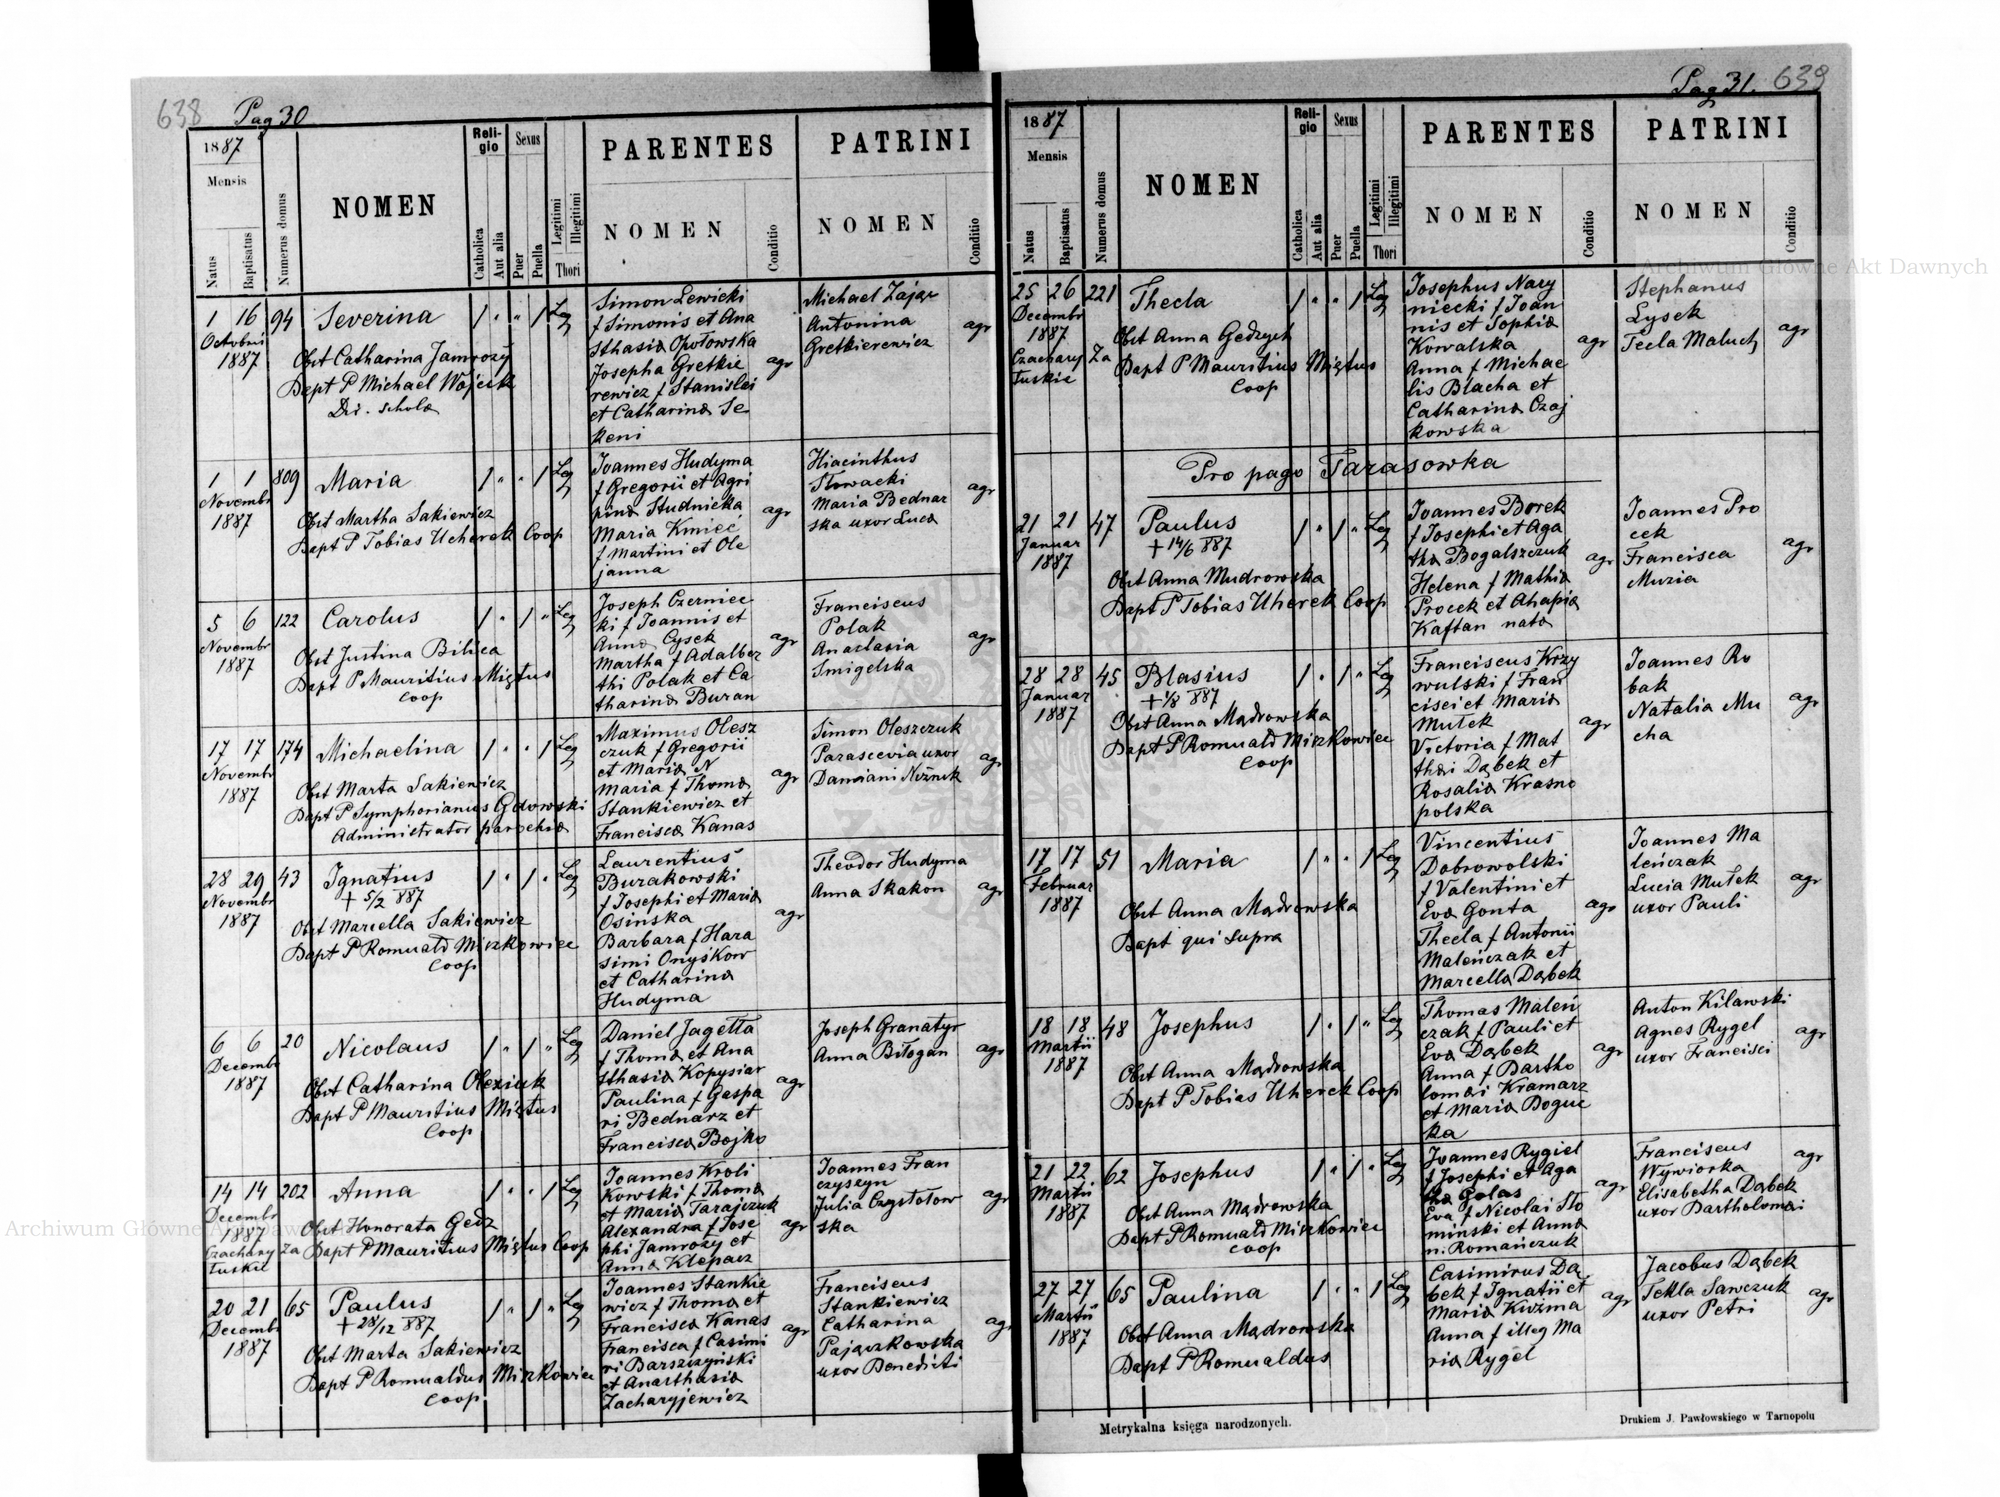 638 Pag 30
1887
Mensis
Natus
Baptisatus
Numerus domus
NOMEN
Religio
Catholica
Aut alia
Sexus
Puer
Puella
Legitimi
Illegitimi
Thori
PARENTES
NOMEN
Conditio
PATRINI
NOMEN
Conditio
1 16 94 Severina 1 " " 1 Leg
Octobris
1887
Obst Catharina Jamroży
Bapt P Michael Wojcik
Dir. schola
Simon Lewicki
f Simonis et Ana
sthasia Opołowska
Josepha Gretkie
rewicz f Stanislai
et Catharina Se
keni
agr
Michael Zając
Antonina
Gretkierewicz
agr
1 1 809 Maria 1 " " 1 Leg
Novembr
1887
Obst Martha Sakiewicz
Bapt P Tobias Ucherek Coop
Joannes Hudyma
f Gregorii et Agri
pina Studnicka
Maria Kmieć
f Martini et Ole
janna
agr
Hiacinthus
Słowacki
Maria Bednar
ska uxor Luca
agr
5 6 122 Carolus 1 " 1 " Leg
Novembr
1887
Obst Justina Bilica
Bapt P Mauritius Miętus
Coop
Joseph Czerniec
ki f Joannis et
Anna Cysek
Martha f Adalber
thi Polak et Ca
tharina Buran
agr
Franciscus
Polak
Anastasia
Smigelska
agr
17 17 174 Michaelina 1 " " 1 Leg
Novembr
1887
Obst Marta Sakiewicz
Bapt P Symphorianus Gdowski
Administrator parochia
Maximus Olesz
czuk f Gregorii
et Maria N
Maria f Thoma
Stankiewicz et
Francisca Kanas
agr
Simon Oleszczuk
Parascevia uxor
Damiani
agr
28 29 43 Ignatius 1 " 1 " Leg
Novembr
1887
+ 5/2 887
Obst Marcella Sakiewicz
Bapt P Romuald Miszkowiec
Coop
Laurentius
Burakowski
f Josephi et Maria
Osinska
Barbara f Hara
simi Onyśkow
et Catharina
Hudyma
agr
Theodor Hudyma
Anna Skakon
agr
6 6 20 Nicolaus 1 " 1 " Leg
Decembr
1887
Obst Catharina Olexiuk
Bapt P Mauritius Miętus
Coop
Daniel Jagełła
f Thoma et Ana
sthasia Kopysiar
Paulina f Gaspa
ri Bednarz et
Francisca Bojko
agr
Joseph Granatyr
Anna Biłogan
agr
14 14 202 Anna 1 " " 1 Leg
Decembr
1887
Czachary
łuskie
Za
Obst Honorata Gedz
Bapt P Mauritius Miętus Coop
Joannes Kroli
kowski f Thoma
et Maria Tarajczuk
Alexandra f Jose
phi Jamroży et
Anna Klepacz
agr
Joannes Fran
czyszyn
Julia Czystołow
ska
agr
20 21 65 Paulus 1 " 1 " Leg
Decembr
1887
+ 28/12 887
Obst Marta Sakiewicz
Bapt P Romualdus Miszkowiec
Coop
Joannes Stankie
wicz f Thoma et
Francisca Kanas
Francisca f Casimi
ri Barszczyński
et Anasthasia
Zacharyjewicz
agr
Franciscus
Stankiewicz
Catharina
Pajączkowska
uxor Benedicti
agr
Pag 31. 639
1887
Mensis
Natus
Baptisatus
Numerus domus
NOMEN
Religio
Catholica
Aut alia
Sexus
Puer
Puella
Legitimi
Illegitimi
Thori
PARENTES
NOMEN
Conditio
PATRINI
NOMEN
Conditio
25 26 221 Thecla 1 " " 1 Leg
Decembr
1887
Czachary
łuskie
Za
Obst Anna Gedzych
Bapt P Mauritius Miętus
Coop
Josephus Nary
niecki f Joan
nis et Sophia
Kowalska
Anna f Michae
lis Blacha et
Catharina Czaj
kowska
agr
Stephanus
Łysek
Tecla Maluch
agr
Pro pago Tarasowka
21 21 47 Paulus 1 " 1 " Leg
Januar
1887
+ 14/6 887
Obst Anna Mudrowska
Bapt P Tobias Uherek Coop
Joannes Borek
f Josephi et Aga
tha Bogalszczuk
Helena f Mathia
Procek et Ahapia
Kaftan nata
agr
Joannes Pro
cek
Francisca
Muzia
agr
28 28 45 Blasius 1 " 1 " Leg
Januar
1887
+ 1/8 887
Obst Anna Mądrowska
Bapt P Romuald Miszkowiec
Coop
Franciscus Krzy
wulski f Fran
cisci et Maria
Mułek
Victoria f Mat
thai Dąbek et
Rosalia Krasno
polska
agr
Joannes Ro
bak
Natalia Mu
cha
agr
17 17 51 Maria 1 " " 1 Leg
Februar
1887
Obst Anna Mądrowska
Bapt qui supra
Vincentius
Dobrowolski
f Valentini et
Eva Gonta
Thecla f Antonii
Maleńczak et
Marcella Dąbek
agr
Joannes Ma
leńczak
Lucia Mułek
uxor Pauli
agr
18 18 48 Josephus 1 " 1 " Leg
Martii
1887
Obst Anna Mądrowska
Bapt P Tobias Uherek Coop
Thomas Maleń
czak f Pauli et
Eva Dąbek
Anna f Bartho
lomai Kramarz
et Maria Boguc
ka
agr
Anton Kilawski
Agnes Rygel
uxor Francisci
agr
21 22 62 Josephus 1 " 1 " Leg
Martii
1887
Obst Anna Mądrowska
Bapt P Romuald Miszkowiec
Coop
Joannes Rygiel
f Josephi et Aga
tha Golas
Eva f Nicolai Sło
minski et Anna
n. Romańczuk
agr
Franciscus
Wywiorka
Elisabetha Dąbek
uxor Bartholomai
agr
27 27 65 Paulina 1 " " 1 Leg
Martii
1887
Obst Anna Mądrowska
Bapt P Romualdus
Casimirus Dą
bek f Ignatii et
Maria Kuzma
Anna f illeg Ma
ria Rygel
agr
Jacobus Dąbek
Tekla Sawczuk
uxor Petri
agr
Metrykalna księga narodzonych.
Drukiem J. Pawłowskiego w Tarnopolu
Archiwum Główne Akt Dawnych
Archiwum Główne Akt Dawnych